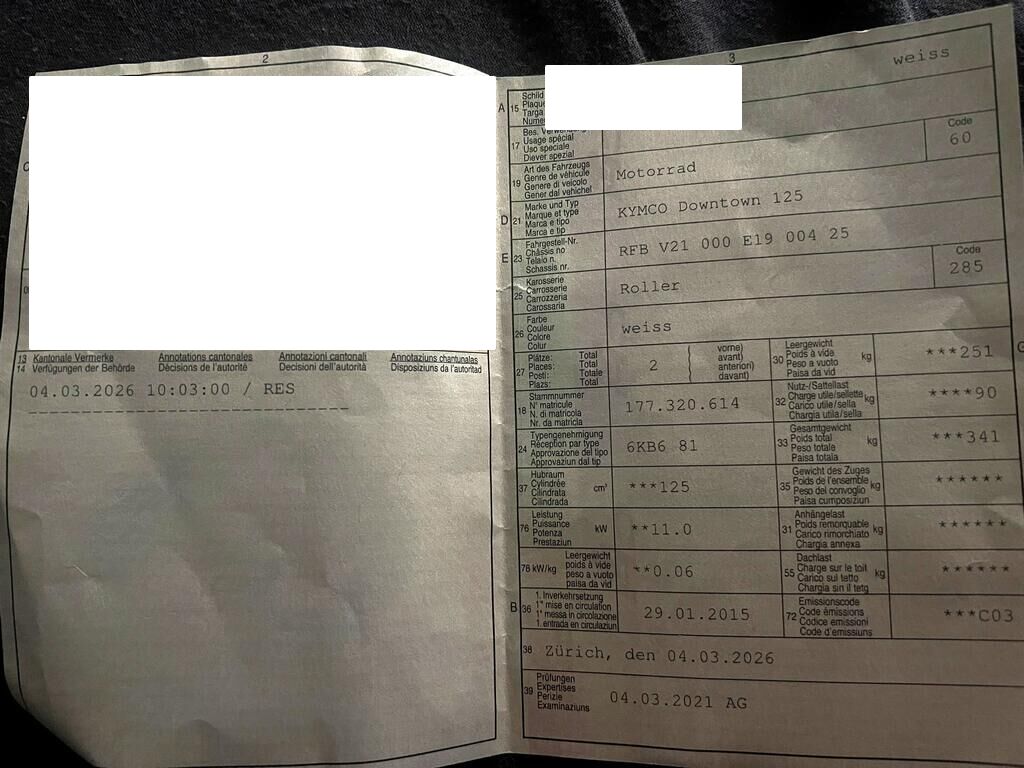 2
13 Kantonale Vermerke Annotations cantonales Annotazioni cantonali Annotaziuns chantunalas
14 Verfügungen der Behörde Décisions de l'autorité Decisioni dell'autorità Disposiziuns da l'autoritad
04.03.2026 10:03:00 / RES
3
weiss
A 15 Schild
Plaque
Targa
17 Bes. Verwendung
Usage spécial
Uso speciale
Diever spezial
Code
60
19 Art des Fahrzeugs
Genre de véhicule
Genere di veicolo
Gener dal vehichel
Motorrad
D 21 Marke und Typ
Marque et type
Marca e tipo
Marca e tip
KYMCO Downtown 125
E 23 Fahrgestell-Nr.
Châssis no
Telaio n.
Schassis nr.
RFB V21 000 E19 004 25
25 Karosserie
Carrosserie
Carrozzeria
Carossaria
Roller
Code
285
26 Farbe
Couleur
Colore
Colur
weiss
27 Plätze: Total
Places: Total
Posti: Totale
Plazs: Total
2
vorne)
avant)
anteriori)
davant)
30 Leergewicht
Poids à vide kg
Peso a vuoto
Paisa da vid
***251
18 Stammnummer
N° matricule
N. di matricola
Nr. da matricla
177.320.614
32 Nutz-/Sattellast
Charge utile/sellette kg
Carico utile/sella
Chargia utila/sella
****90
24 Typengenehmigung
Réception par type
Approvazione del tipo
Approvaziun dal tip
6KB6 81
33 Gesamtgewicht
Poids total kg
Peso totale
Paisa totala
***341
37 Hubraum
Cylindrée cm³
Cilindrata
Cilindrada
***125
35 Gewicht des Zuges
Poids de l'ensemble kg
Peso del convoglio
Paisa cumposiziun
******
76 Leistung
Puissance kW
Potenza
Prestaziun
**11.0
31 Anhängelast
Poids remorquable kg
Carico rimorchiato
Chargia annexa
******
78 kW/kg Leergewicht
poids à vide
peso a vuoto
paisa da vid
**0.06
55 Dachlast
Charge sur le toit kg
Carico sul tetto
Chargia sin il tetg
******
B 36 1. Inverkehrsetzung
1re mise en circulation
1a messa in circolazione
1. entrada en circulaziun
29.01.2015
72 Emissionscode
Code émissions
Codice emissioni
Code d'emissiuns
***C03
38 Zürich, den 04.03.2026
39 Prüfungen
Expertises
Perizie
Examinaziuns
04.03.2021 AG